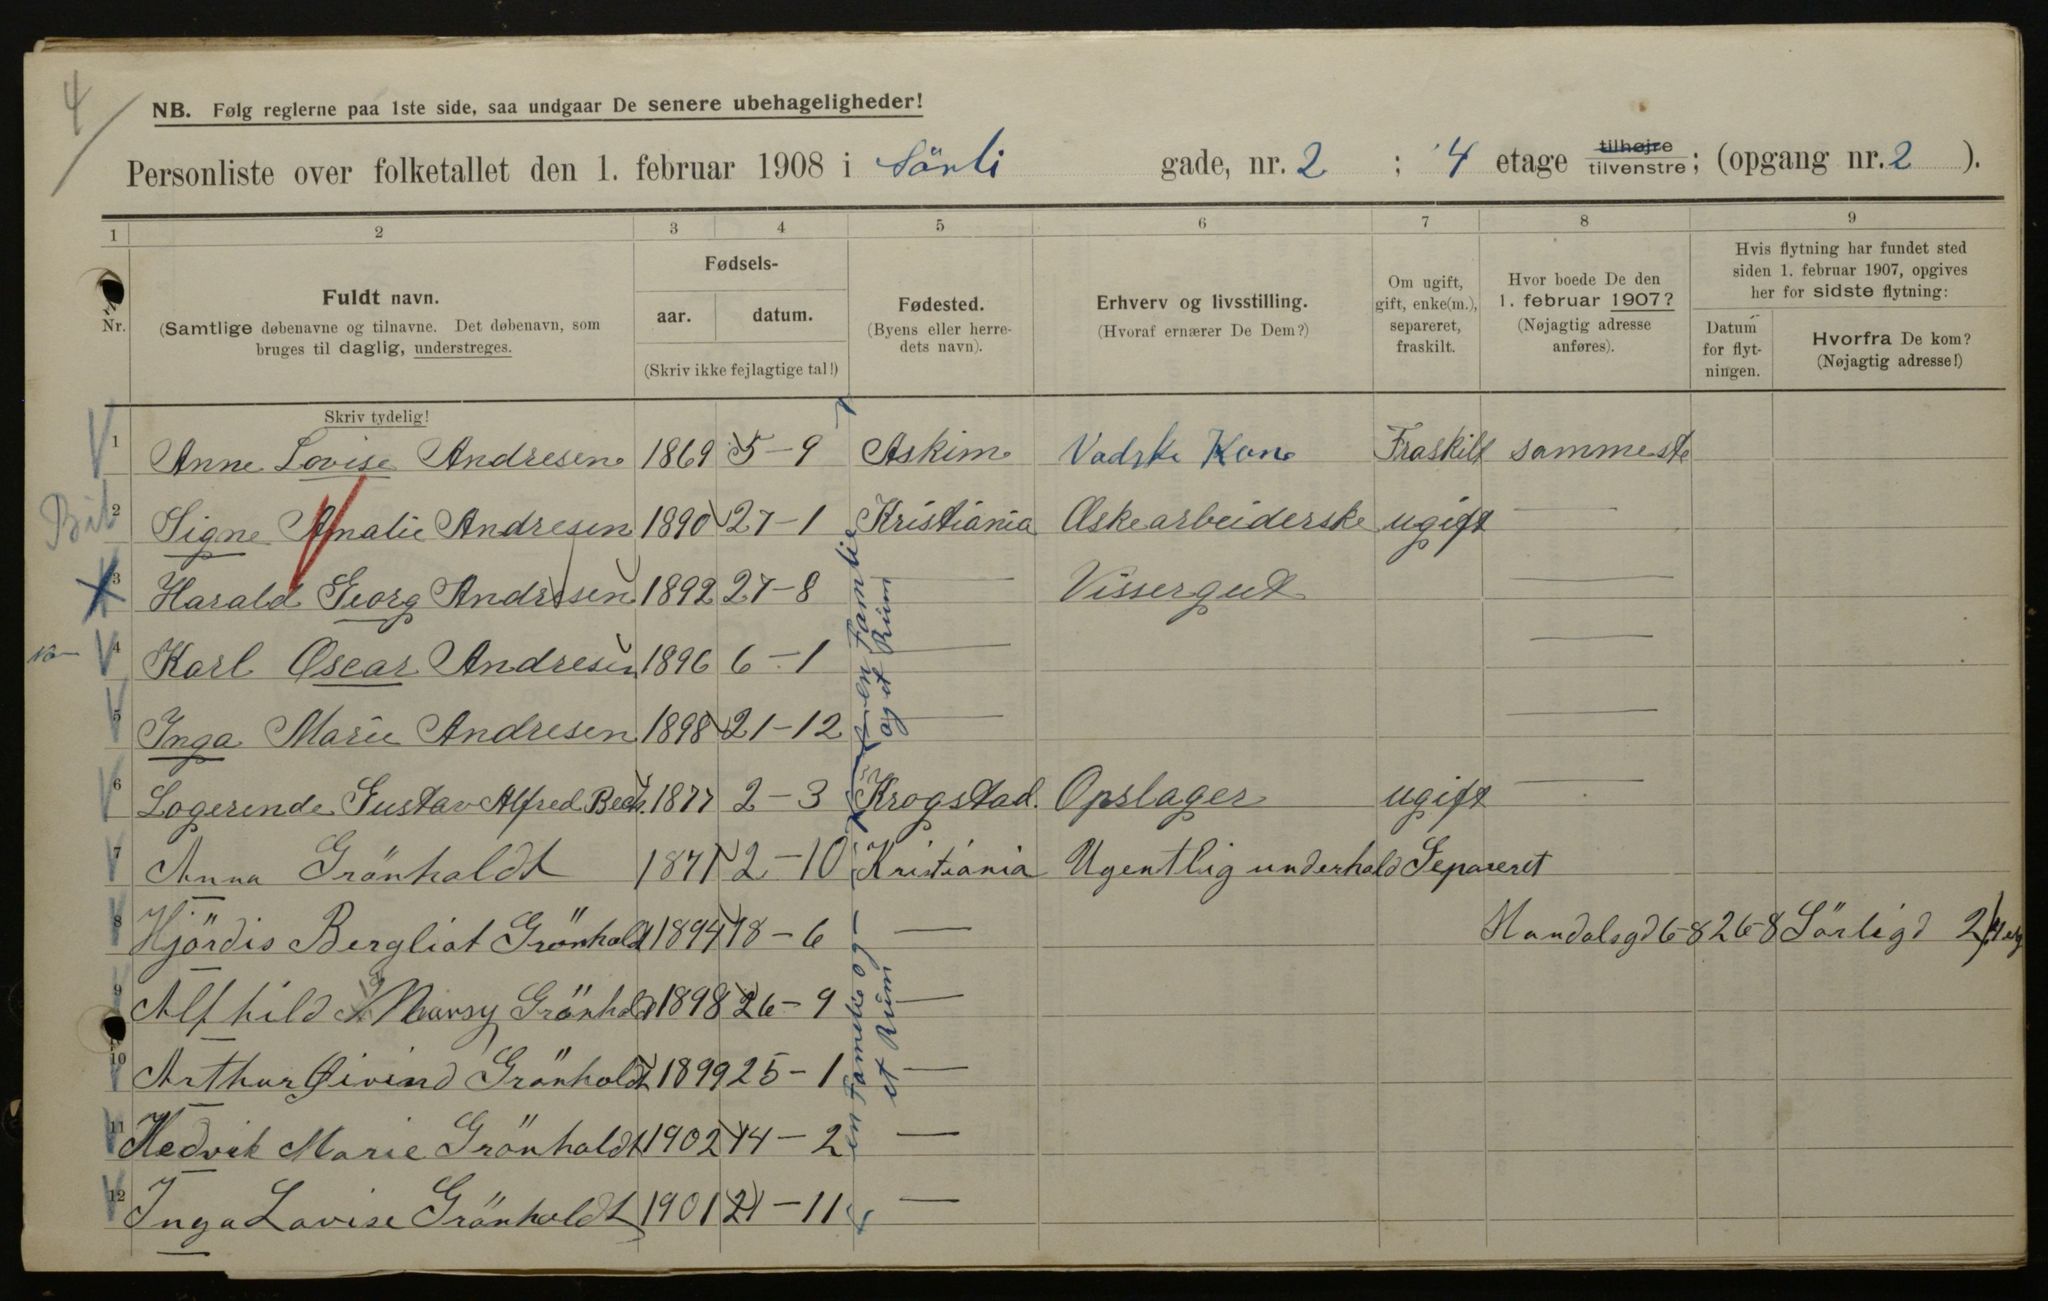 4
NB. Følg reglerne paa 1ste side, saa undgaar De senere ubehageligheder!
Personliste over folketallet den 1. februar 1908 i Sörli gade, nr. 2 ; 4 etage tilhøjre tilvenstre; (opgang nr. 2 ).
1 2 3 4 5 6 7 8 9
Nr.
Fuldt navn.
(Samtlige døbenavne og tilnavne. Det døbenavn, som
bruges til daglig, understreges.
Fødsels-
aar. datum.
(Skriv ikke fejlagtige tal!)
Fødested.
(Byens eller herre-
dets navn).
Erhverv og livsstilling.
(Hvoraf ernærer De Dem?)
Om ugift,
gift, enke(m.),
separeret,
fraskilt.
Hvor boede De den
1. februar 1907?
(Nøjagtig adresse
anføres).
Hvis flytning har fundet sted
siden 1. februar 1907, opgives
her for sidste flytning:
Datum
for flyt-
ningen.
Hvorfra De kom?
(Nøjagtig adresse!)
Skriv tydelig!
1 Anne Lovise Andresen 1869 5-9 Askim Vadske Kone Fraskilt sammeste
2 Signe Amalie Andresen 1890 27-1 Kristiania Æskearbeiderske ugift —
3 Harald Georg Andresen 1892 27-8 — Vissergut —
4 Karl Oscar Andresen 1896 6-1 — —
5 Inga Marie Andresen 1898 21-12 — —
6 Logerende Gustav Alfred Beck. 1877 2-3 Krogstad. Opslager ugift —
7 Anna Grönholdt 1871 2-10 Kristiania Ugentlig underhold Separeret
8 Hjördis Bergliot Grönholdt 1894 18-6 — Mandalsgd 6-8 26-8 Sörligd 2
9 Alfhild Marsy Grönholdt 1898 26-9 —
10 Arthur Øivind Grönholdt 1899 25-1 —
11 Hedvik Marie Grönholdt 1902 14-2 —
12 Inga Lovise Grönholdt 1901 21-11 —
en Familie
og et Rum
en Familie og
et Rum